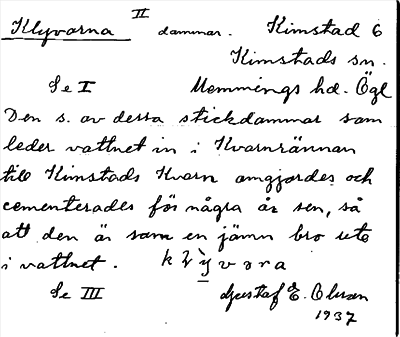 Klyvarna II dammar. Kimstad 6
Kimstads sn.
Se I Memmings hd. Ögl
Den s. av dessa stickdammar som
leder vattnet in i Kvarnrännan
till Kimstads Kvarn omgjordes och
cementerades för några år sen, så
att den är som en jämn bro ute
i vattnet. klỳvara
Se III Gustaf E. Olsson
1937